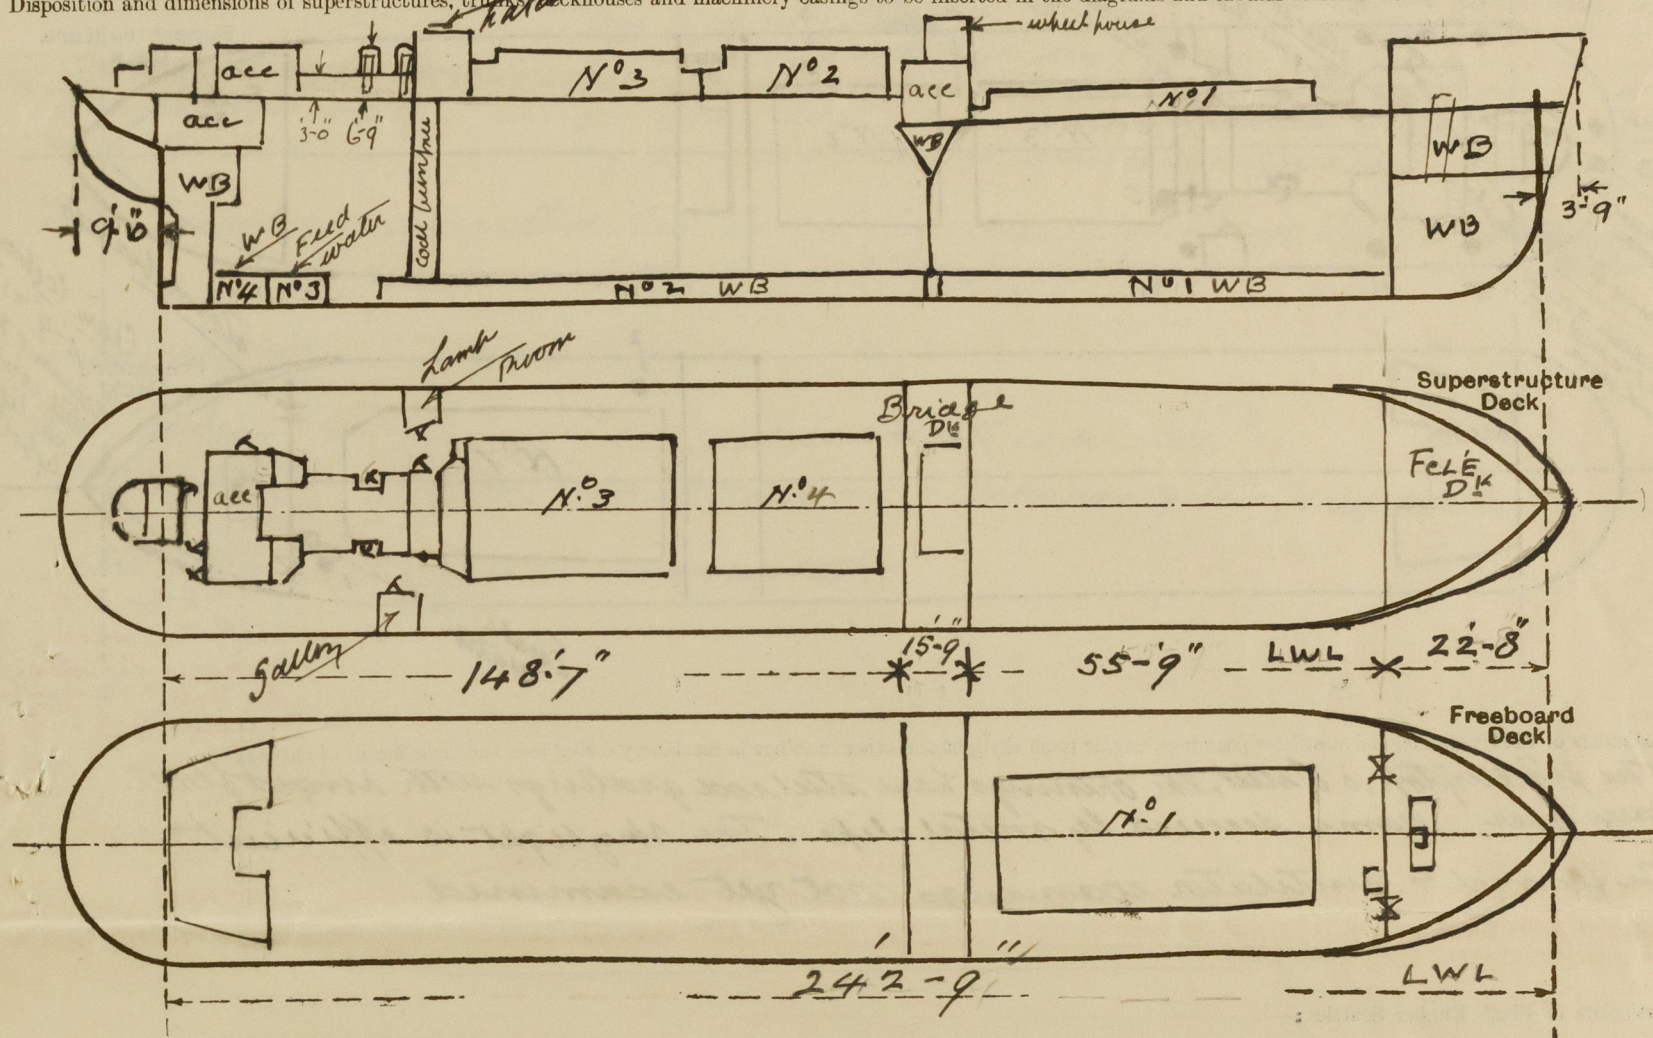 Disposition and dimensions of superstructures, trunks, deckhouses and machinery casings to be inserted in the diagrams and
wheel house
acc
Nº3
Nº2
acc
Nº1
acc
3'-0"
6'-9"
WB
WB
WB
9'-0"
WB
Feed
water
Coal bunker
3'-9"
WB
Nº4
Nº3
Nº2 WB
Nº1 WB
Lamp
Room
Superstructure
Deck
Bridge
Dk
Fcle
Dk
acc
Nº3
Nº4
Galley
148'-7"
15'-9"
55'-9"
LWL
22'-8"
Freeboard
Deck
Nº1
242'-9"
LWL